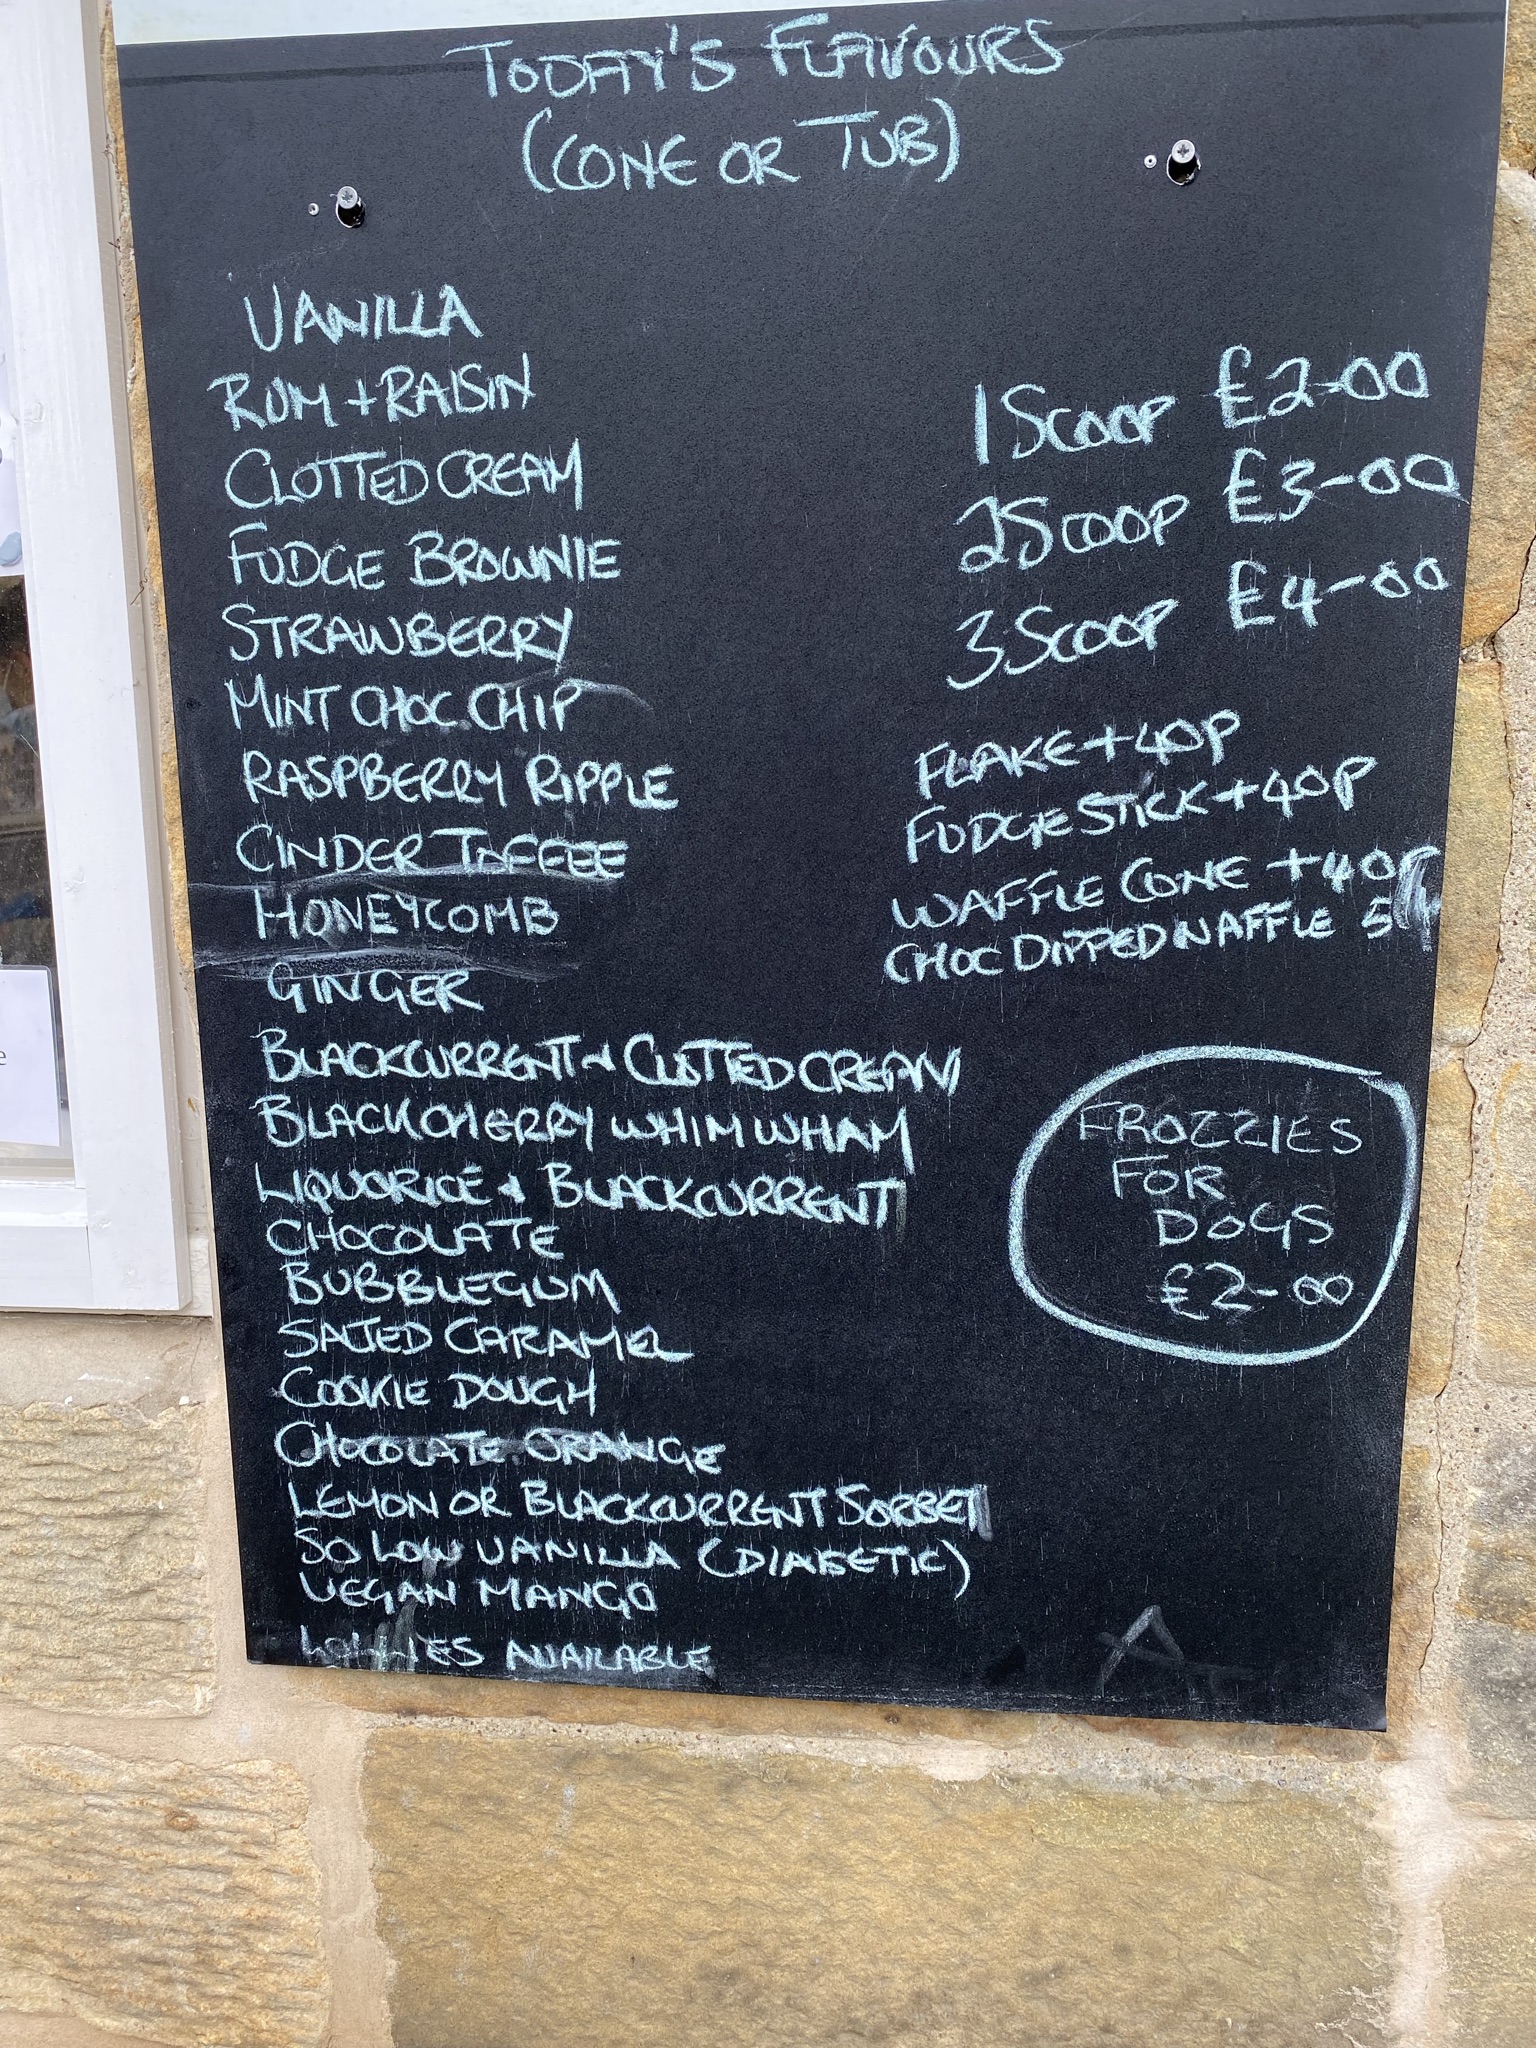 TODAY'S FLAVOURS
(CONE OR TUB)
VANILLA
RUM + RAISIN
CLOTTED CREAM
FUDGE BROWNIE
STRAWBERRY
MINT CHOC CHIP
RASPBERRY RIPPLE
CINDER TOFFEE
HONEYCOMB
GINGER
BLACKCURRENT & CLOTTED CREAM
BLACKCHERRY WHIM WHAM
LIQUORICE & BLACKCURRENT
CHOCOLATE
BUBBLEGUM
SALTED CARAMEL
COOKIE DOUGH
CHOCOLATE ORANGE
LEMON OR BLACKCURRENT SORBET
SO LOW VANILLA (DIABETIC)
VEGAN MANGO
LOLLIES AVAILABLE
1 SCOOP £2-00
2 SCOOP £3-00
3 SCOOP £4-00
FLAKE + 40P
FUDGE STICK + 40P
WAFFLE CONE + 40P
CHOC DIPPED WAFFLE
FROZZIES
FOR
DOGS
£2-00